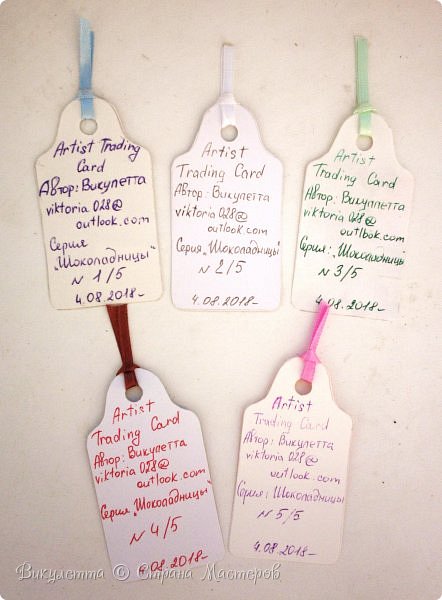 Artist Trading
Card
Автор: Викулетта
viktoria028@
outlook.com
Серия
„Шоколадницы"
N 1/5
4.08.2018-
Artist
Trading Card
Автор: Викулетта
viktoria028@
outlook.com
Серия „Шоколадницы"
N 2/5
4.08.2018-
Artist
Trading Card
Автор: Викулетта
viktoria028@
outlook.com
Серия: „Шоколадницы"
N 3/5
4.08.2018-
Artist
Trading Card
Автор: Викулетта
viktoria028@
outlook.com
Серия „Шоколадницы"
N 4/5
4.08.2018-
Artist
Trading Card
Автор: Викулетта
viktoria028@
outlook.com
Серия: Шоколадницы
N 5/5
4.08.2018-
Викулетта © Страна Мастеров